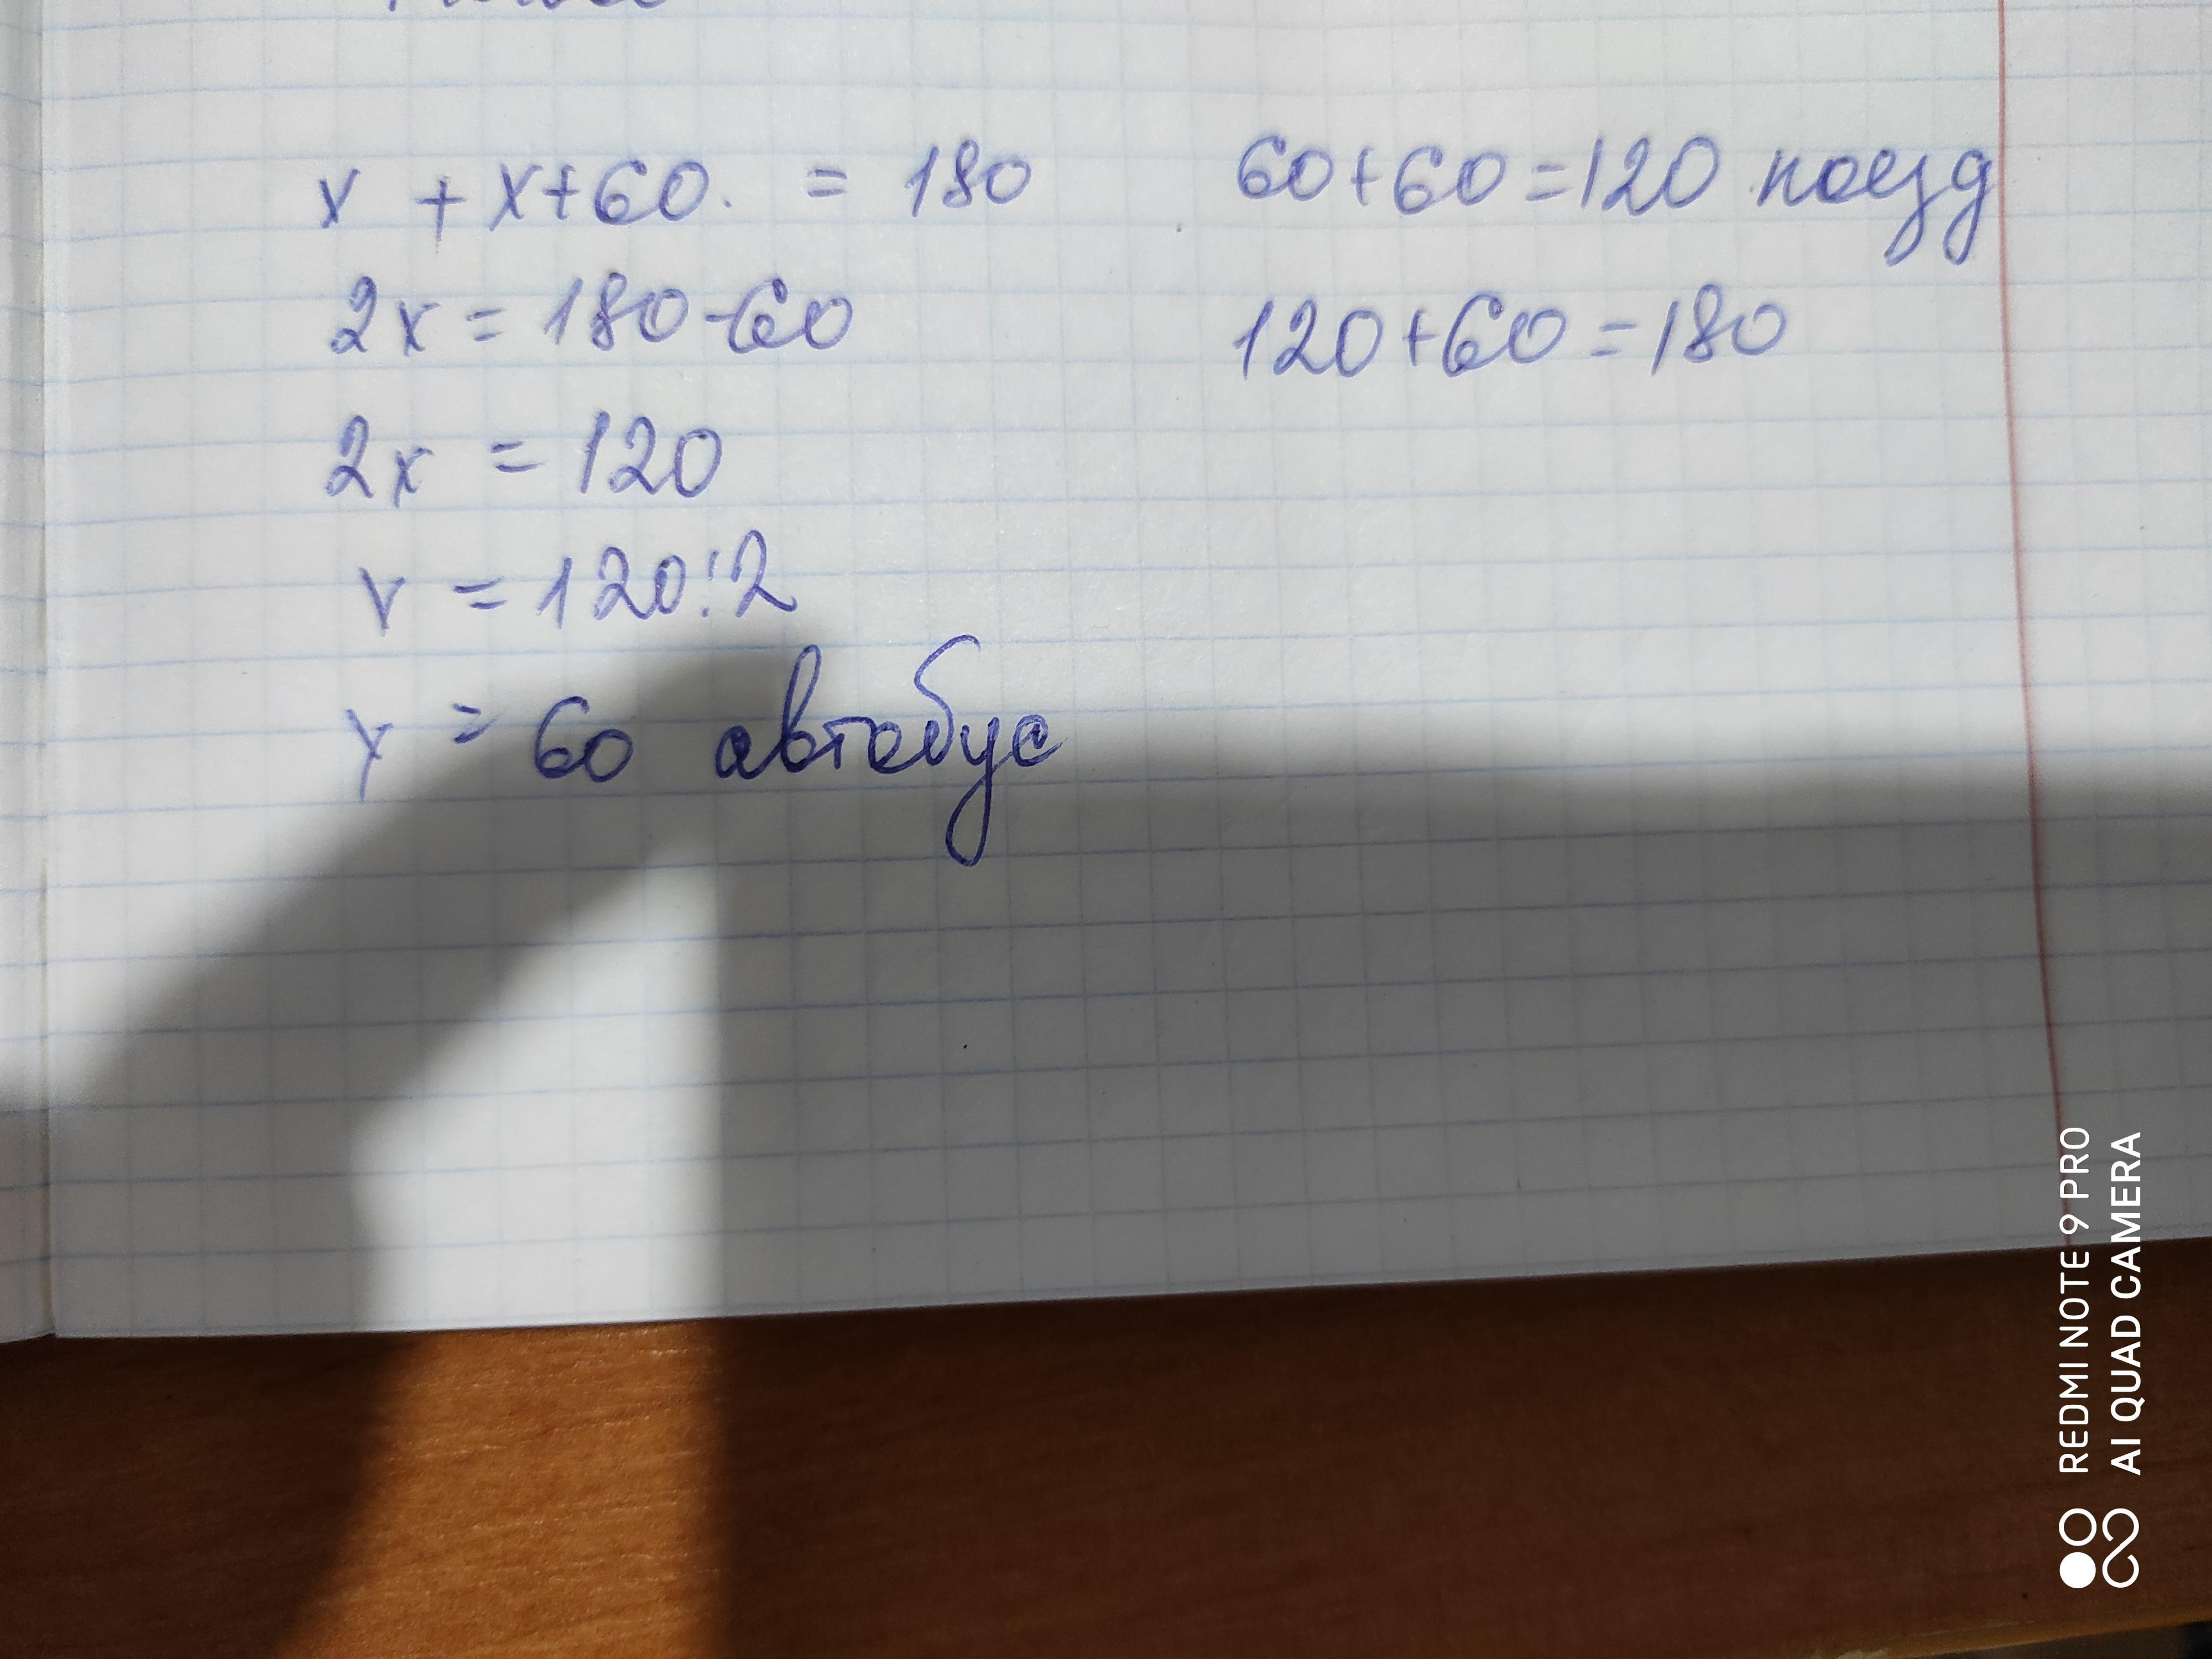 x + x+60. = 180
2x = 180-60
2x = 120
x = 120:2
x = 60 автобус
60+60=120 поезд
120+60=180
REDMI NOTE 9 PRO
AI QUAD CAMERA